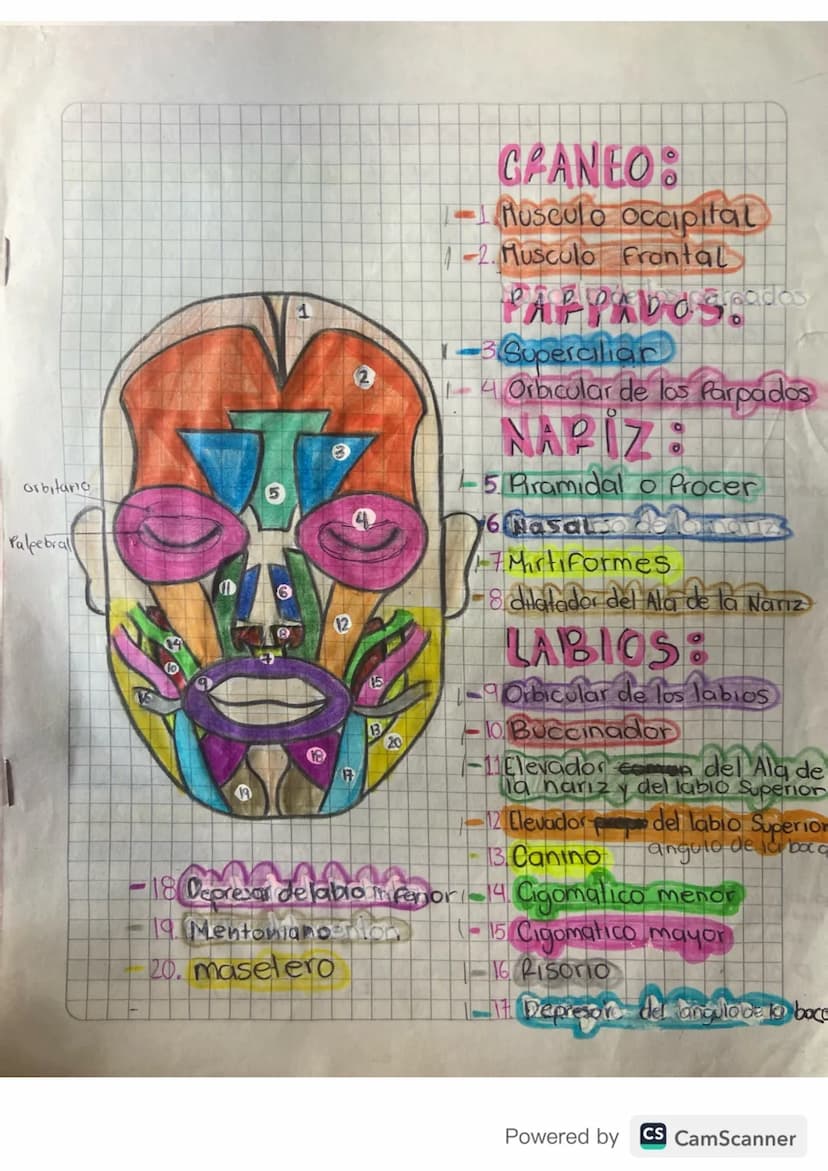 CRANEO:
1 -1. Musculo occipital
1 -2. Musculo Frontal
PARPADOS:
1 -3 Superciliar
1- 4 Orbicular de los Parpados
NARIZ:
1-5. Piramidal o Procer
6 Nasal
1-7 Mirtiformes
-8. dilatador del Ala de la Nariz
LABIOS:
1-9 Orbicular de los labios
1-10 Buccinador
1-11 Elevador del Ala de
la nariz y del labio Superior
1-12 Elevador del labio Superior
angulo de la boca
-13. Canino
1-14. Cigomatico menor
1-15 Cigomatico mayor
1-16 Risorio
1-17 Depresor del angulo de la boca
-18 Depresor de labio inferior
-19. Mentoniano
-20. masetero
orbitario
Palpebral
1
2
3
5
4
11
6
12
8
7
14
10
9
15
16
13
20
18
17
19
Powered by CS CamScanner